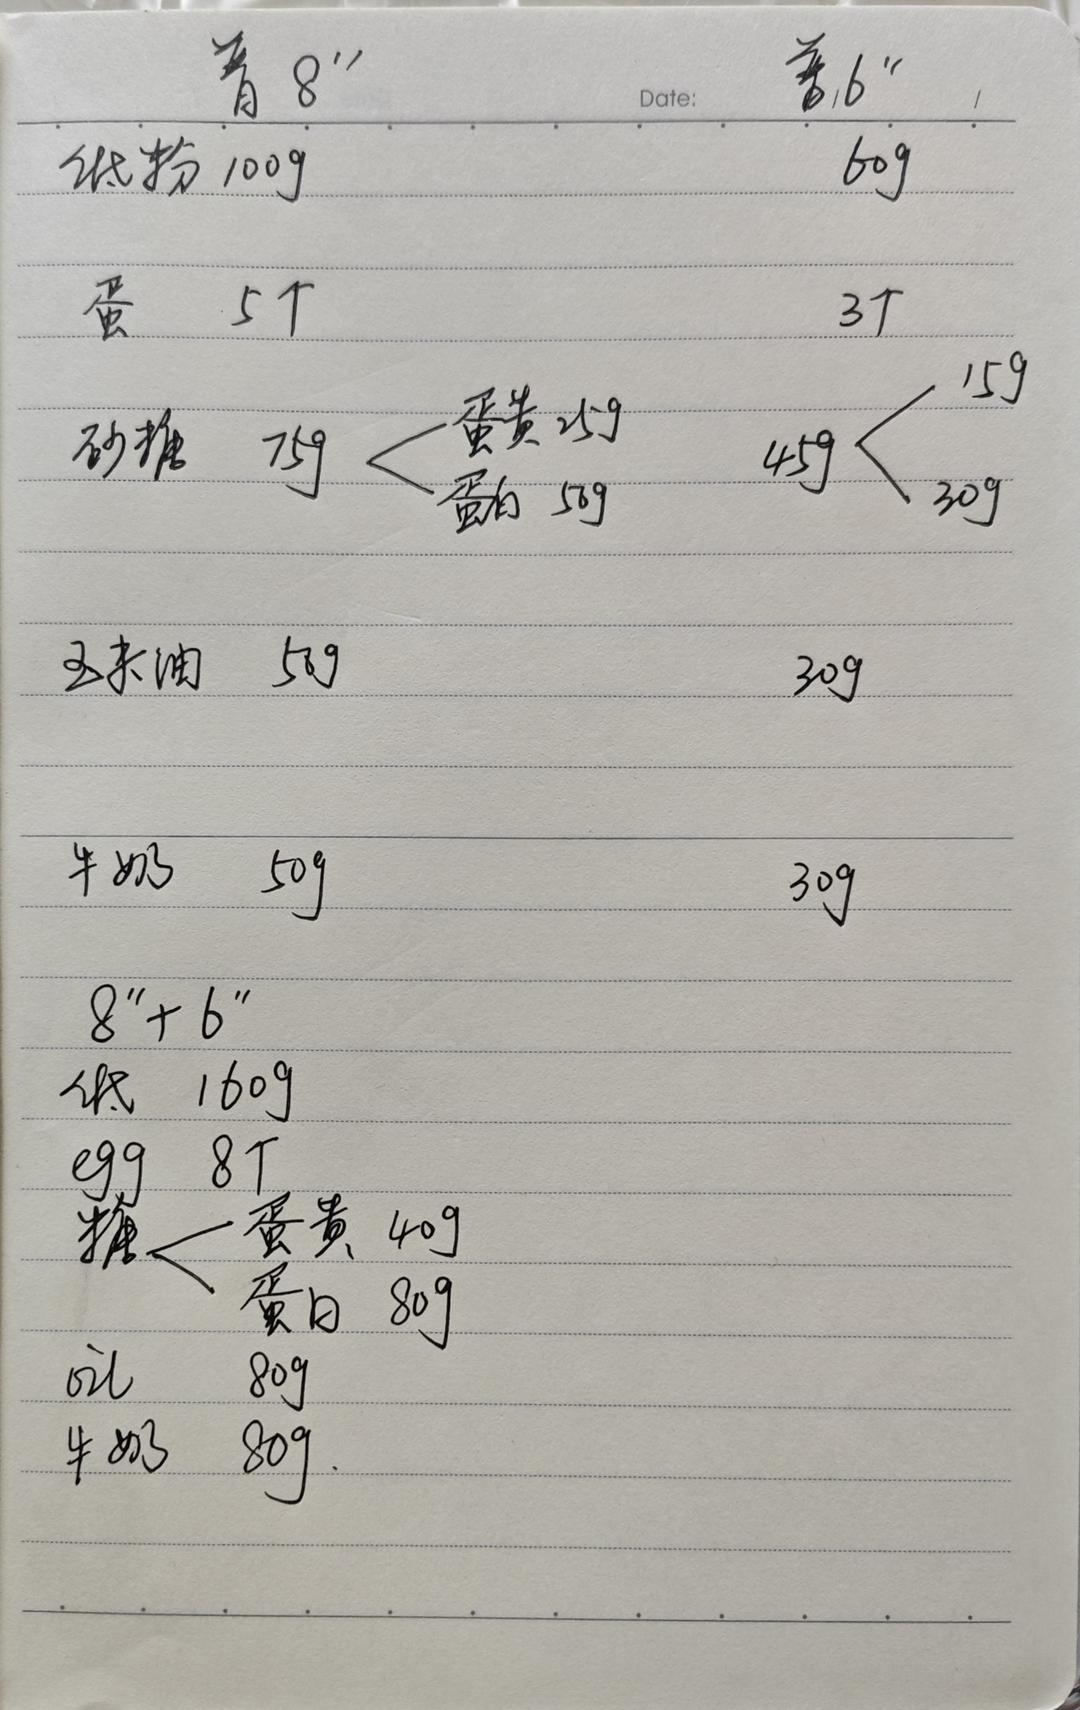 普 8" 普 6"
Date: /
低粉 100g 60g
蛋 5个 3个
砂糖 75g 蛋黄 25g 45g 15g
蛋白 50g 30g
玉米油 50g 30g
牛奶 50g 30g
8"+6"
低 160g
egg 8个
糖 蛋黄 40g
蛋白 80g
oil 80g
牛奶 80g.